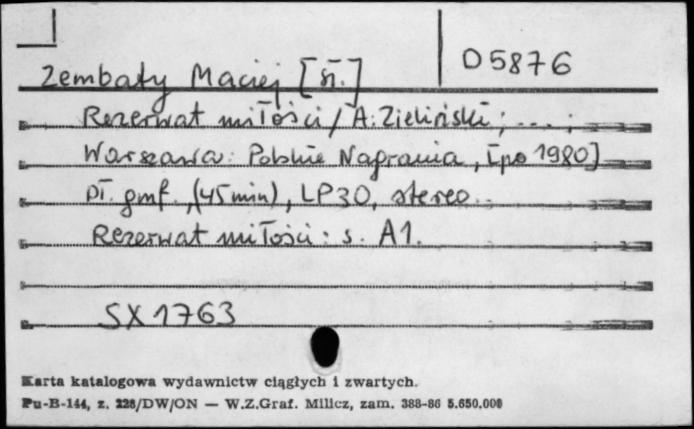 D 5876
Zembaty Maciej [sł.]
Rezerwat miłości / A. Zieliński; ... ;
Warszawa: Polskie Nagrania, [po 1980]
Pł. gmf. (45 min), LP30, stereo.
Rezerwat miłości: s. A1.
SX 1763
Karta katalogowa wydawnictw ciągłych i zwartych.
Pu-B-144, z. 228/DW/ON — W.Z.Graf. Milicz, zam. 388-86 5.650,000